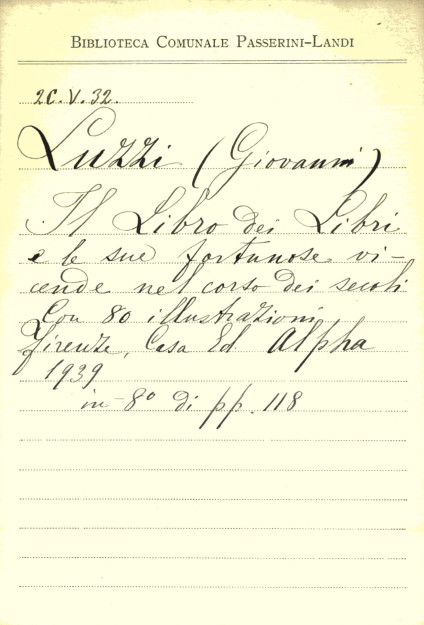 BIBLIOTECA COMUNALE PASSERINI-LANDI
2C.V.32.
Luzzi (Giovanni)
Il Libro dei Libri
e le sue fortunose vi-
cende nel corso dei secoli
Con 80 illustrazioni
Firenze, Casa Ed. Alpha
1939
in-8° di pp. 118